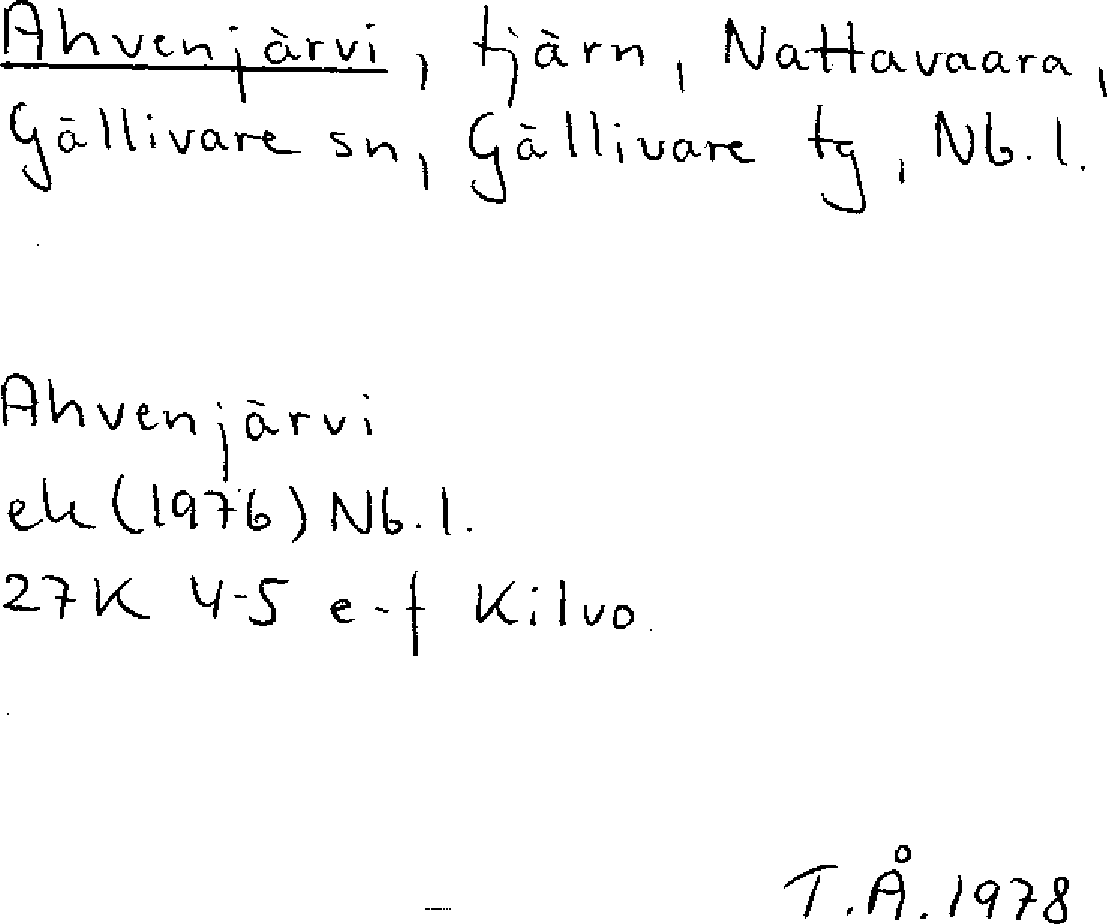 Ahvenjärvi, tjärn, Nattavaara,
Gällivare sn, Gällivare tg, Nb. l.
Ahvenjärvi
ek (1976) Nb. l.
27K 4-5 e-f Kilvo
T.Å. 1978